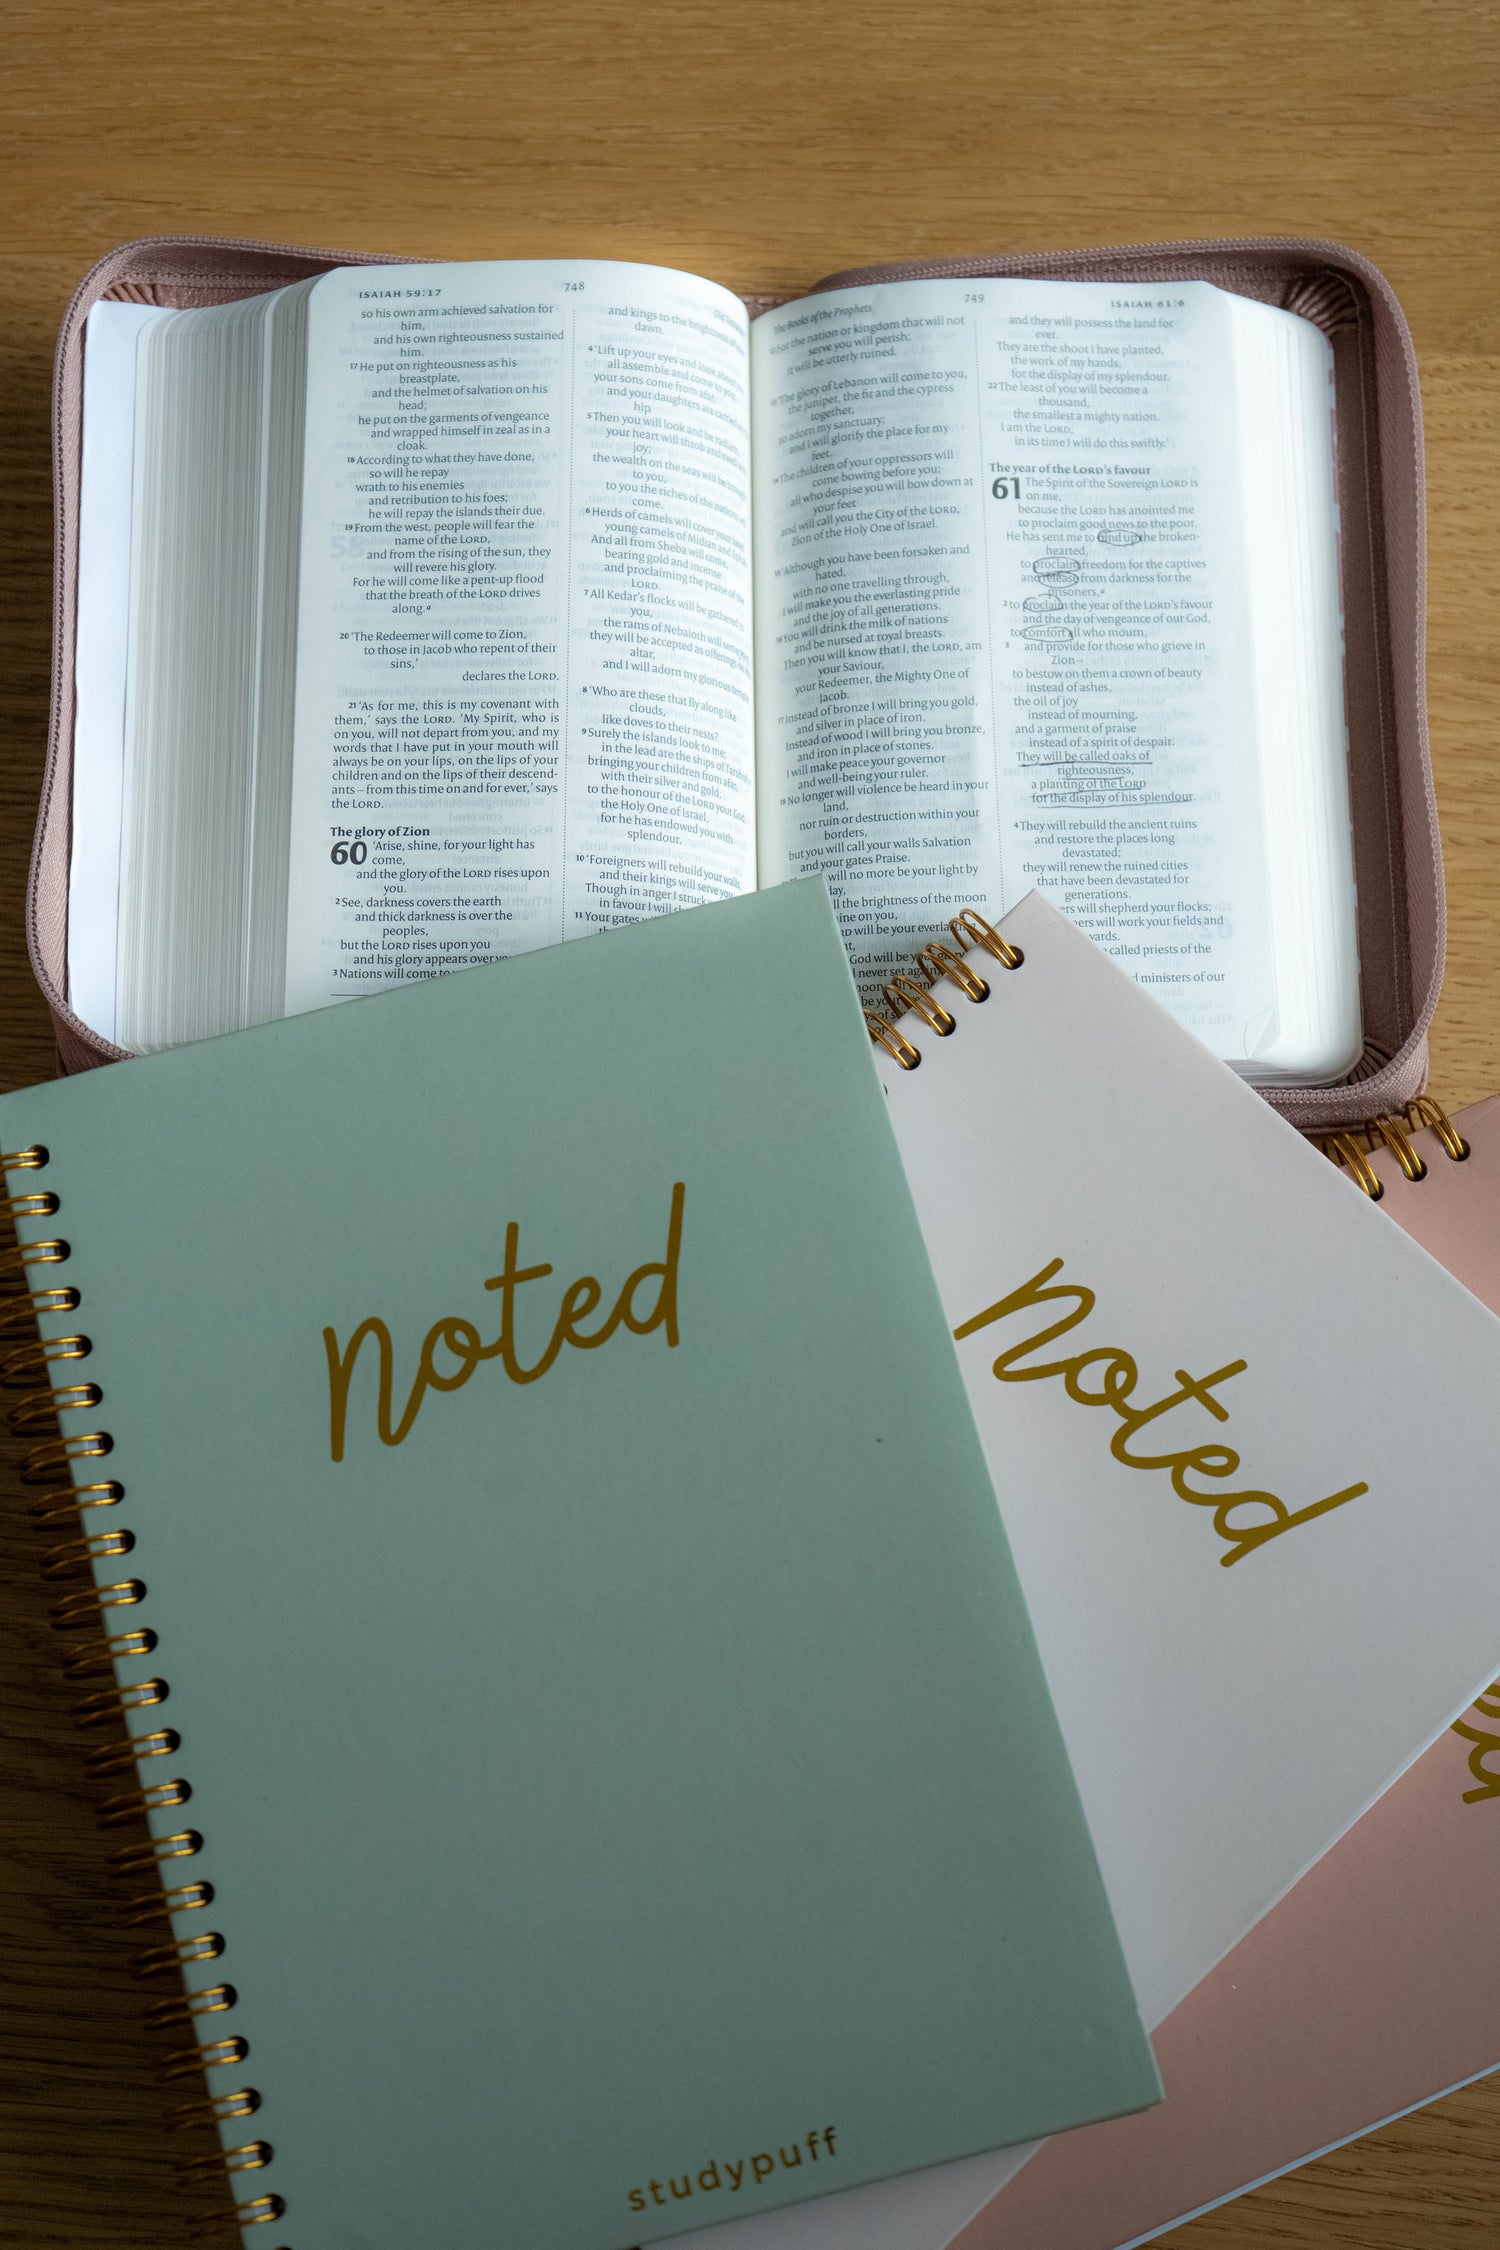 ISAIAH 59:17
748
so his own arm achieved salvation for
him,
and his own righteousness sustained
him.
17 He put on righteousness as his
breastplate,
and the helmet of salvation on his
head;
he put on the garments of vengeance
and wrapped himself in zeal as in a
cloak.
18 According to what they have done,
so will he repay
wrath to his enemies
and retribution to his foes;
he will repay the islands their due.
19 From the west, people will fear the
name of the LORD,
and from the rising of the sun, they
will revere his glory.
For he will come like a pent-up flood
that the breath of the LORD drives
along.a
20 ‘The Redeemer will come to Zion,
to those in Jacob who repent of their
sins,’
declares the LORD.
21 ‘As for me, this is my covenant with
them,’ says the LORD. ‘My Spirit, who is
on you, will not depart from you, and my
words that I have put in your mouth will
always be on your lips, on the lips of your
children and on the lips of their descend-
ants – from this time on and for ever,’ says
the LORD.
The glory of Zion
60 ‘Arise, shine, for your light has
come,
and the glory of the LORD rises upon
you.
2 See, darkness covers the earth
and thick darkness is over the
peoples,
but the LORD rises upon you
and his glory appears over
3 Nations will come to
and kings to the brightness of
dawn.
4 ‘Lift up your eyes and look about
all assemble and come to you;
your sons come from afar,
and your daughters are carried
hip.
5 Then you will look and be radiant,
your heart will throb and swell
joy;
the wealth on the seas will be brought
to you,
to you the riches of the nations
come.
6 Herds of camels will cover your land,
young camels of Midian and
And all from Sheba will come,
bearing gold and incense
and proclaiming the praise of the
LORD.
7 All Kedar’s flocks will be gathered
you,
the rams of Nebaioth will serve
they will be accepted as offerings
altar,
and I will adorn my glorious
8 ‘Who are these that fly along like
clouds,
like doves to their nests?
9 Surely the islands look to me;
in the lead are the ships of
bringing your children from afar,
with their silver and gold,
to the honour of the LORD your God,
the Holy One of Israel,
for he has endowed you with
splendour.
10 ‘Foreigners will rebuild your walls,
and their kings will serve you.
Though in anger I struck
in favour I will
11 Your gates
The Books of the Prophets
749
ISAIAH 61:6
For the nation or kingdom that will not
serve you will perish;
it will be utterly ruined.
‘The glory of Lebanon will come to you,
the juniper, the fir and the cypress
together,
to adorn my sanctuary;
and I will glorify the place for my
feet.
The children of your oppressors will
come bowing before you;
all who despise you will bow down at
your feet
and will call you the City of the LORD,
Zion of the Holy One of Israel.
‘Although you have been forsaken and
hated,
with no one travelling through,
I will make you the everlasting pride
and the joy of all generations.
You will drink the milk of nations
and be nursed at royal breasts.
Then you will know that I, the LORD, am
your Saviour,
your Redeemer, the Mighty One of
Jacob.
Instead of bronze I will bring you gold,
and silver in place of iron.
Instead of wood I will bring you bronze,
and iron in place of stones.
I will make peace your governor
and well-being your ruler.
18 No longer will violence be heard in your
land,
nor ruin or destruction within your
borders,
but you will call your walls Salvation
and your gates Praise.
will no more be your light by
the brightness of the moon
on you,
will be your everlasting
God will be your glory
never set again,
and they will possess the land for
ever.
They are the shoot I have planted,
the work of my hands,
for the display of my splendour.
22 The least of you will become a
thousand,
the smallest a mighty nation.
I am the LORD;
in its time I will do this swiftly.’
The year of the LORD’s favour
61 The Spirit of the Sovereign LORD is
on me,
because the LORD has anointed me
to proclaim good news to the poor.
He has sent me to bind up the broken-
hearted,
to proclaim freedom for the captives
and release from darkness for the
prisoners,a
2 to proclaim the year of the LORD’s favour
and the day of vengeance of our God,
to comfort all who mourn,
3 and provide for those who grieve in
Zion –
to bestow on them a crown of beauty
instead of ashes,
the oil of joy
instead of mourning,
and a garment of praise
instead of a spirit of despair.
They will be called oaks of
righteousness,
a planting of the LORD
for the display of his splendour.
4 They will rebuild the ancient ruins
and restore the places long
devastated;
they will renew the ruined cities
that have been devastated for
generations.
will shepherd your flocks;
will work your fields and
called priests of the
ministers of our
noted
noted
studypuff